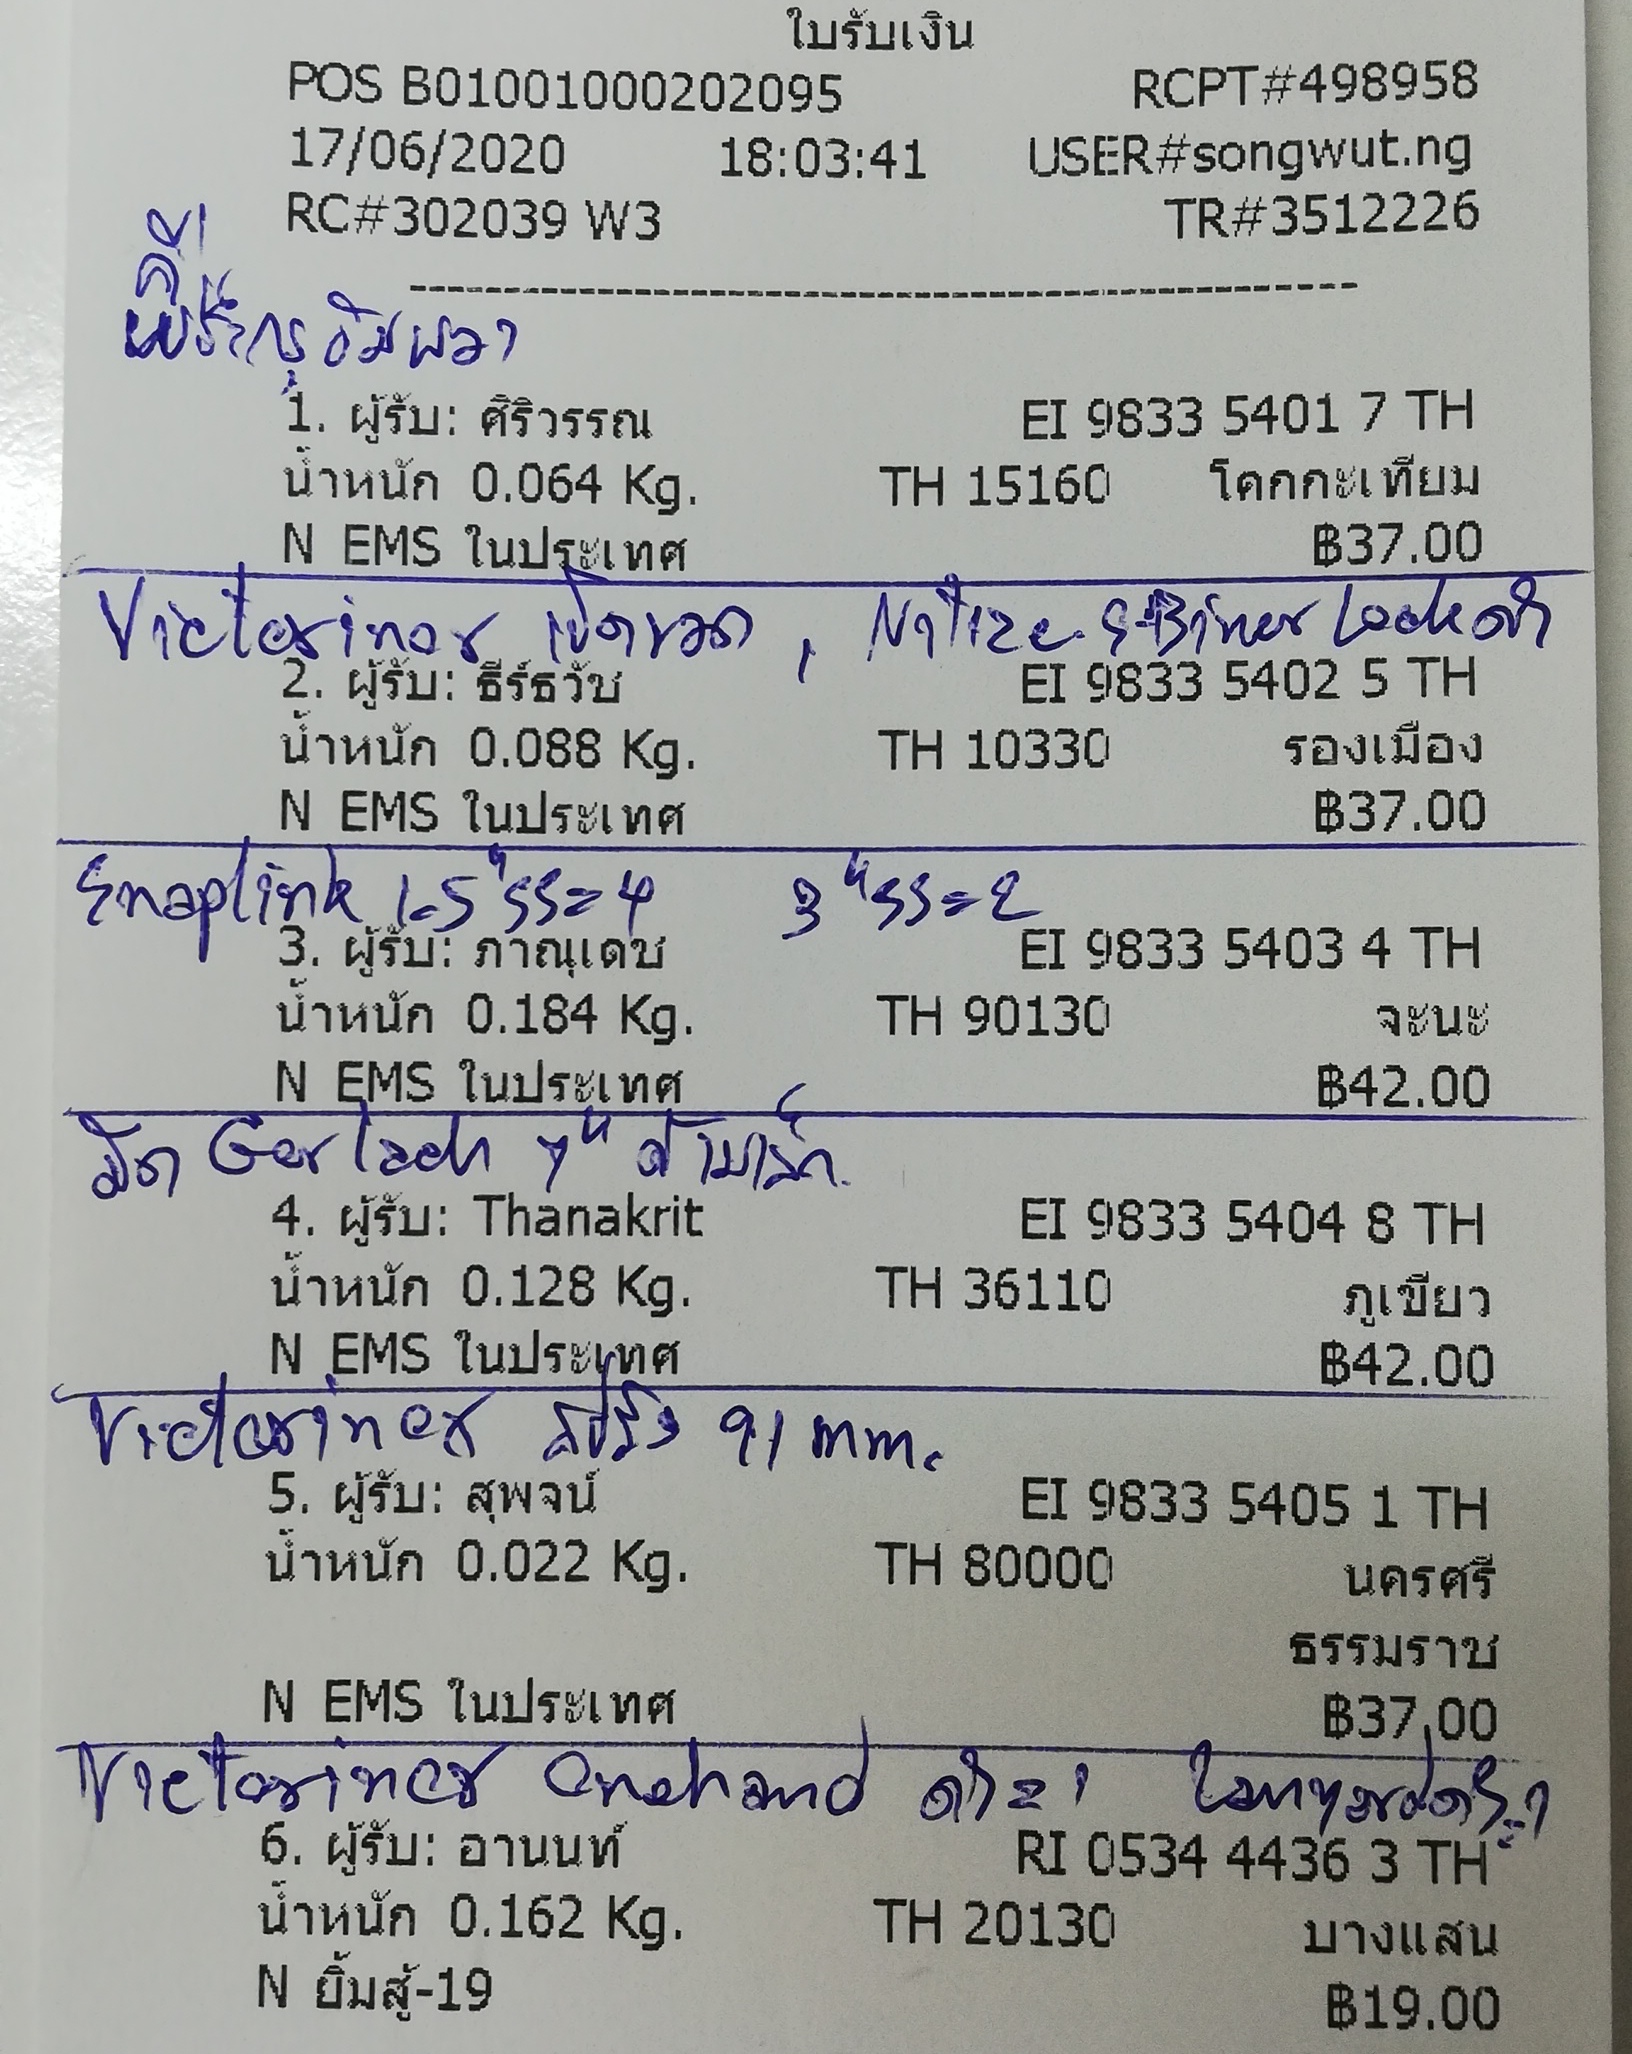 ใบรับเงิน
POS B01001000202095 RCPT#498958
17/06/2020 18:03:41 USER#songwut.ng
RC#302039 W3 TR#3512226
1. ผู้รับ: ศิริวรรณ EI 9833 5401 7 TH
น้ำหนัก 0.064 Kg. TH 15160 โคกกะเทียม
N EMS ในประเทศ ฿37.00
Victorinox เปิดขวด, Nitize S-Biner Lock ดำ
2. ผู้รับ: ธีร์ธวัช EI 9833 5402 5 TH
น้ำหนัก 0.088 Kg. TH 10330 รองเมือง
N EMS ในประเทศ ฿37.00
Snaplink 1.5" SS=4 3" SS=2
3. ผู้รับ: ภาณุเดช EI 9833 5403 4 TH
น้ำหนัก 0.184 Kg. TH 90130 จะนะ
N EMS ในประเทศ ฿42.00
มีด Gerlach 7"
4. ผู้รับ: Thanakrit EI 9833 5404 8 TH
น้ำหนัก 0.128 Kg. TH 36110 ภูเขียว
N EMS ในประเทศ ฿42.00
Victorinox สปริง 91 mm.
5. ผู้รับ: สุพจน์ EI 9833 5405 1 TH
น้ำหนัก 0.022 Kg. TH 80000 นครศรี
ธรรมราช
N EMS ในประเทศ ฿37.00
Victorinox Onehand ดำ=1 Lanyard ดำ=1
6. ผู้รับ: อานนท์ RI 0534 4436 3 TH
น้ำหนัก 0.162 Kg. TH 20130 บางแสน
N ยิ้มสู้-19 ฿19.00